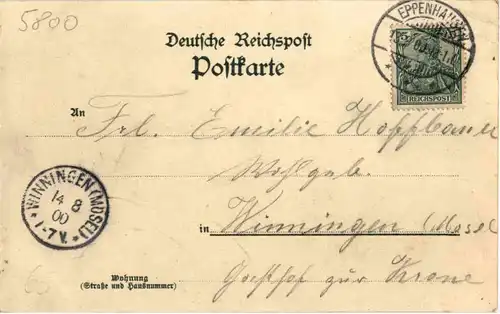 5800
EPPENHAUSEN
5
REICHSPOST
Deutsche Reichspost
Postkarte
An
Frl. Emilie Hoffbauer
Wohlgeb.
in Winningen (Mosel
Gasthof zur Krone
WINNINGEN (MOSEL)
14 8
00
7-7V.
Wohnung
(Straße und Hausnummer)